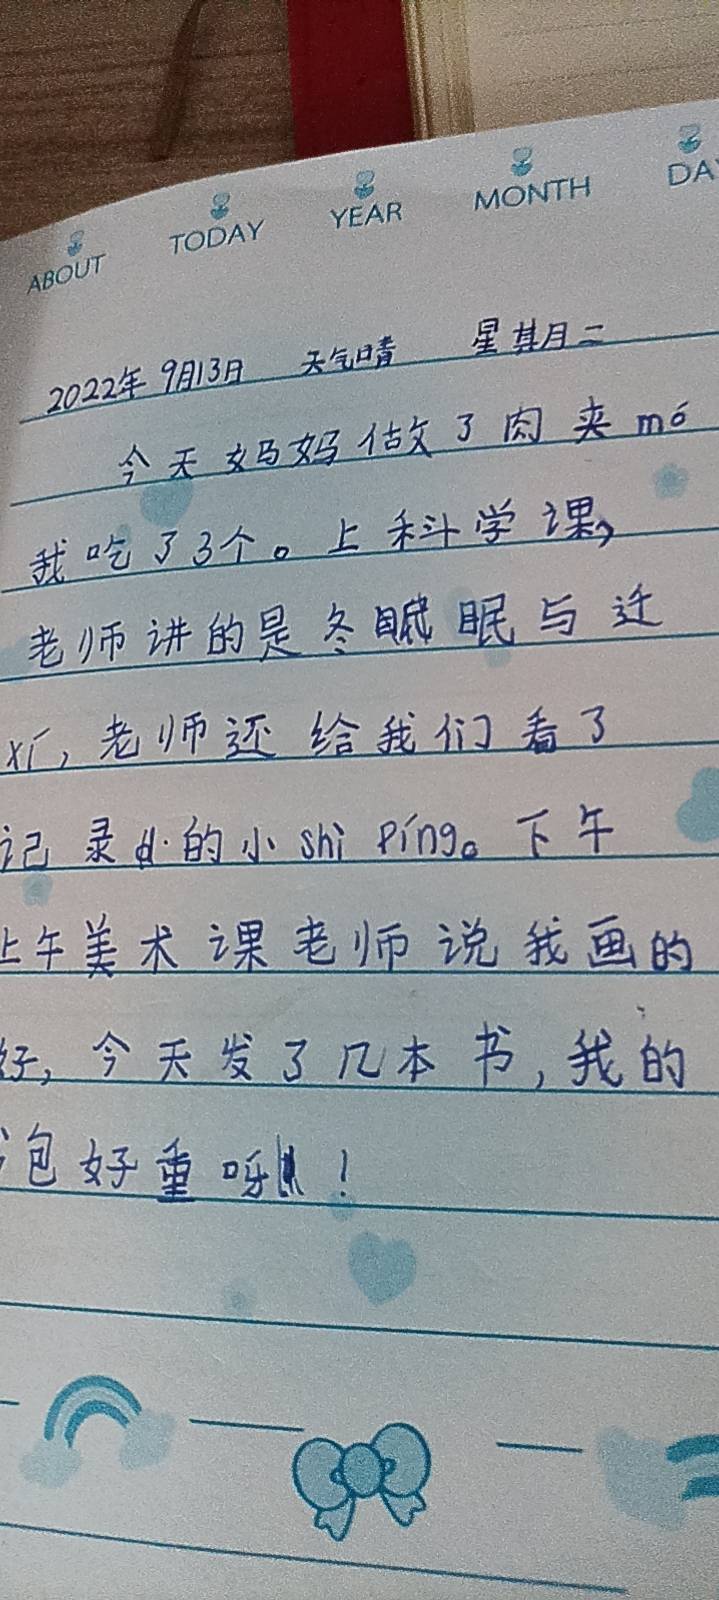 ABOUT TODAY YEAR MONTH DA
2022年9月13日 天气晴 星其月二
今天妈妈做了肉夹mó
我吃了3个。上科学课,
老师讲的是冬眠与迁
xǐ,老师还给我们看了
记录的小shì píng。下午
上午美术课老师说我画的
好,今天发了几本书,我的
包好重呀!